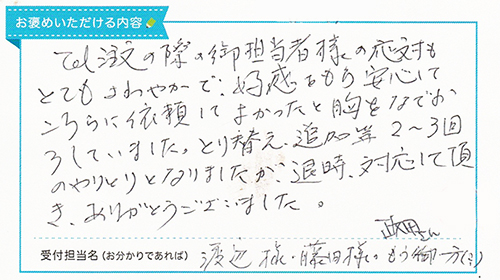 お褒めいただける内容
Tel注文の際の御担当者様の応対も
とてもさわやかで、好感をもち安心して
こちらに依頼してよかったと胸をなでお
ろしていました。とり替え、追加等2〜3回
のやりとりとなりましたが、退時、対応して頂
き、ありがとうございました。
政田さん
受付担当名(お分かりであれば) 渡辺様・藤田様・もう御一方(?)